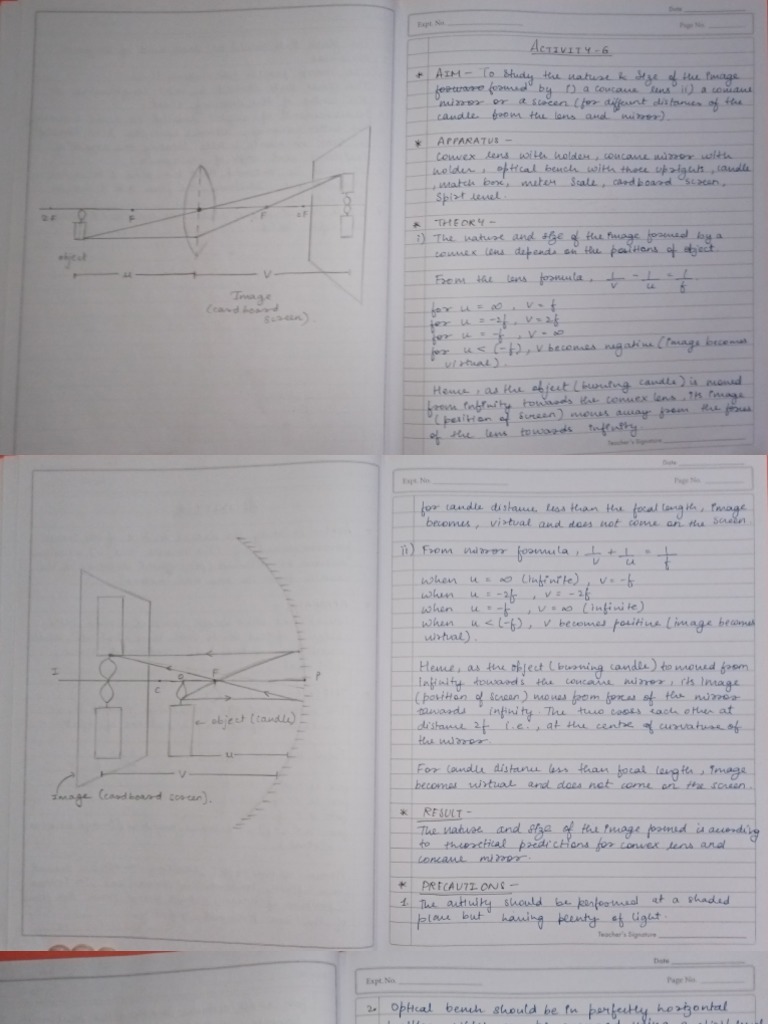 Date
Expt. No.
Page No.
ACTIVITY-6
* AIM - To study the nature & size of the image
formed by i) a concave lens ii) a concave
mirror or a screen (for different distances of the
candle from the lens and mirror).
* APPARATUS -
Convex lens with holder, concave mirror with
holder, optical bench with three uprights, candle
, match box, meter scale, cardboard screen,
Spirt level.
* THEORY -
i) The nature and size of the image formed by a
convex lens depends on the positions of object.
From the lens formula, 1/v - 1/u = 1/f
for u = ∞, v = f
for u = -2f, v = 2f
for u = -f, v = ∞
for u < (-f), v becomes negative (image becomes
virtual).
Hence, as the object (burning candle) is moved
from infinity towards the convex lens, its image
(position of screen) moves away from the focus
of the lens towards infinity
Teacher's Signature
2F
F
F
2F
object
u
v
Image
(cardboard
screen).
Expt. No.
Date
Page No.
for candle distance less than the focal length, image
becomes, virtual and does not come on the screen.
ii) From mirror formula, 1/v + 1/u = 1/f
when u = ∞ (infinite), v = -f
when u = -2f, v = -2f
when u = -f, v = ∞ (infinite)
when u < (-f), v becomes positive (image becomes
virtual).
Hence, as the object (burning candle) to moved from
Infinity towards the concave mirror, its image
(position of screen) moves from focus of the mirror
towards infinity. The two cross each other at
distance 2f i.e., at the centre of curvature of
the mirror.
For candle distance less than focal length, image
becomes virtual and does not come on the screen.
* RESULT -
The nature and size of the image formed is according
to theoretical predictions for convex lens and
concave mirror.
* PRECAUTIONS -
1. The activity should be performed at a shaded
place but having plenty of light.
Teacher's Signature
I
C
F
P
object (candle)
u
v
Image (cardboard screen).
Date
Expt. No.
Page No.
2. Optical bench should be in perfectly horizontal